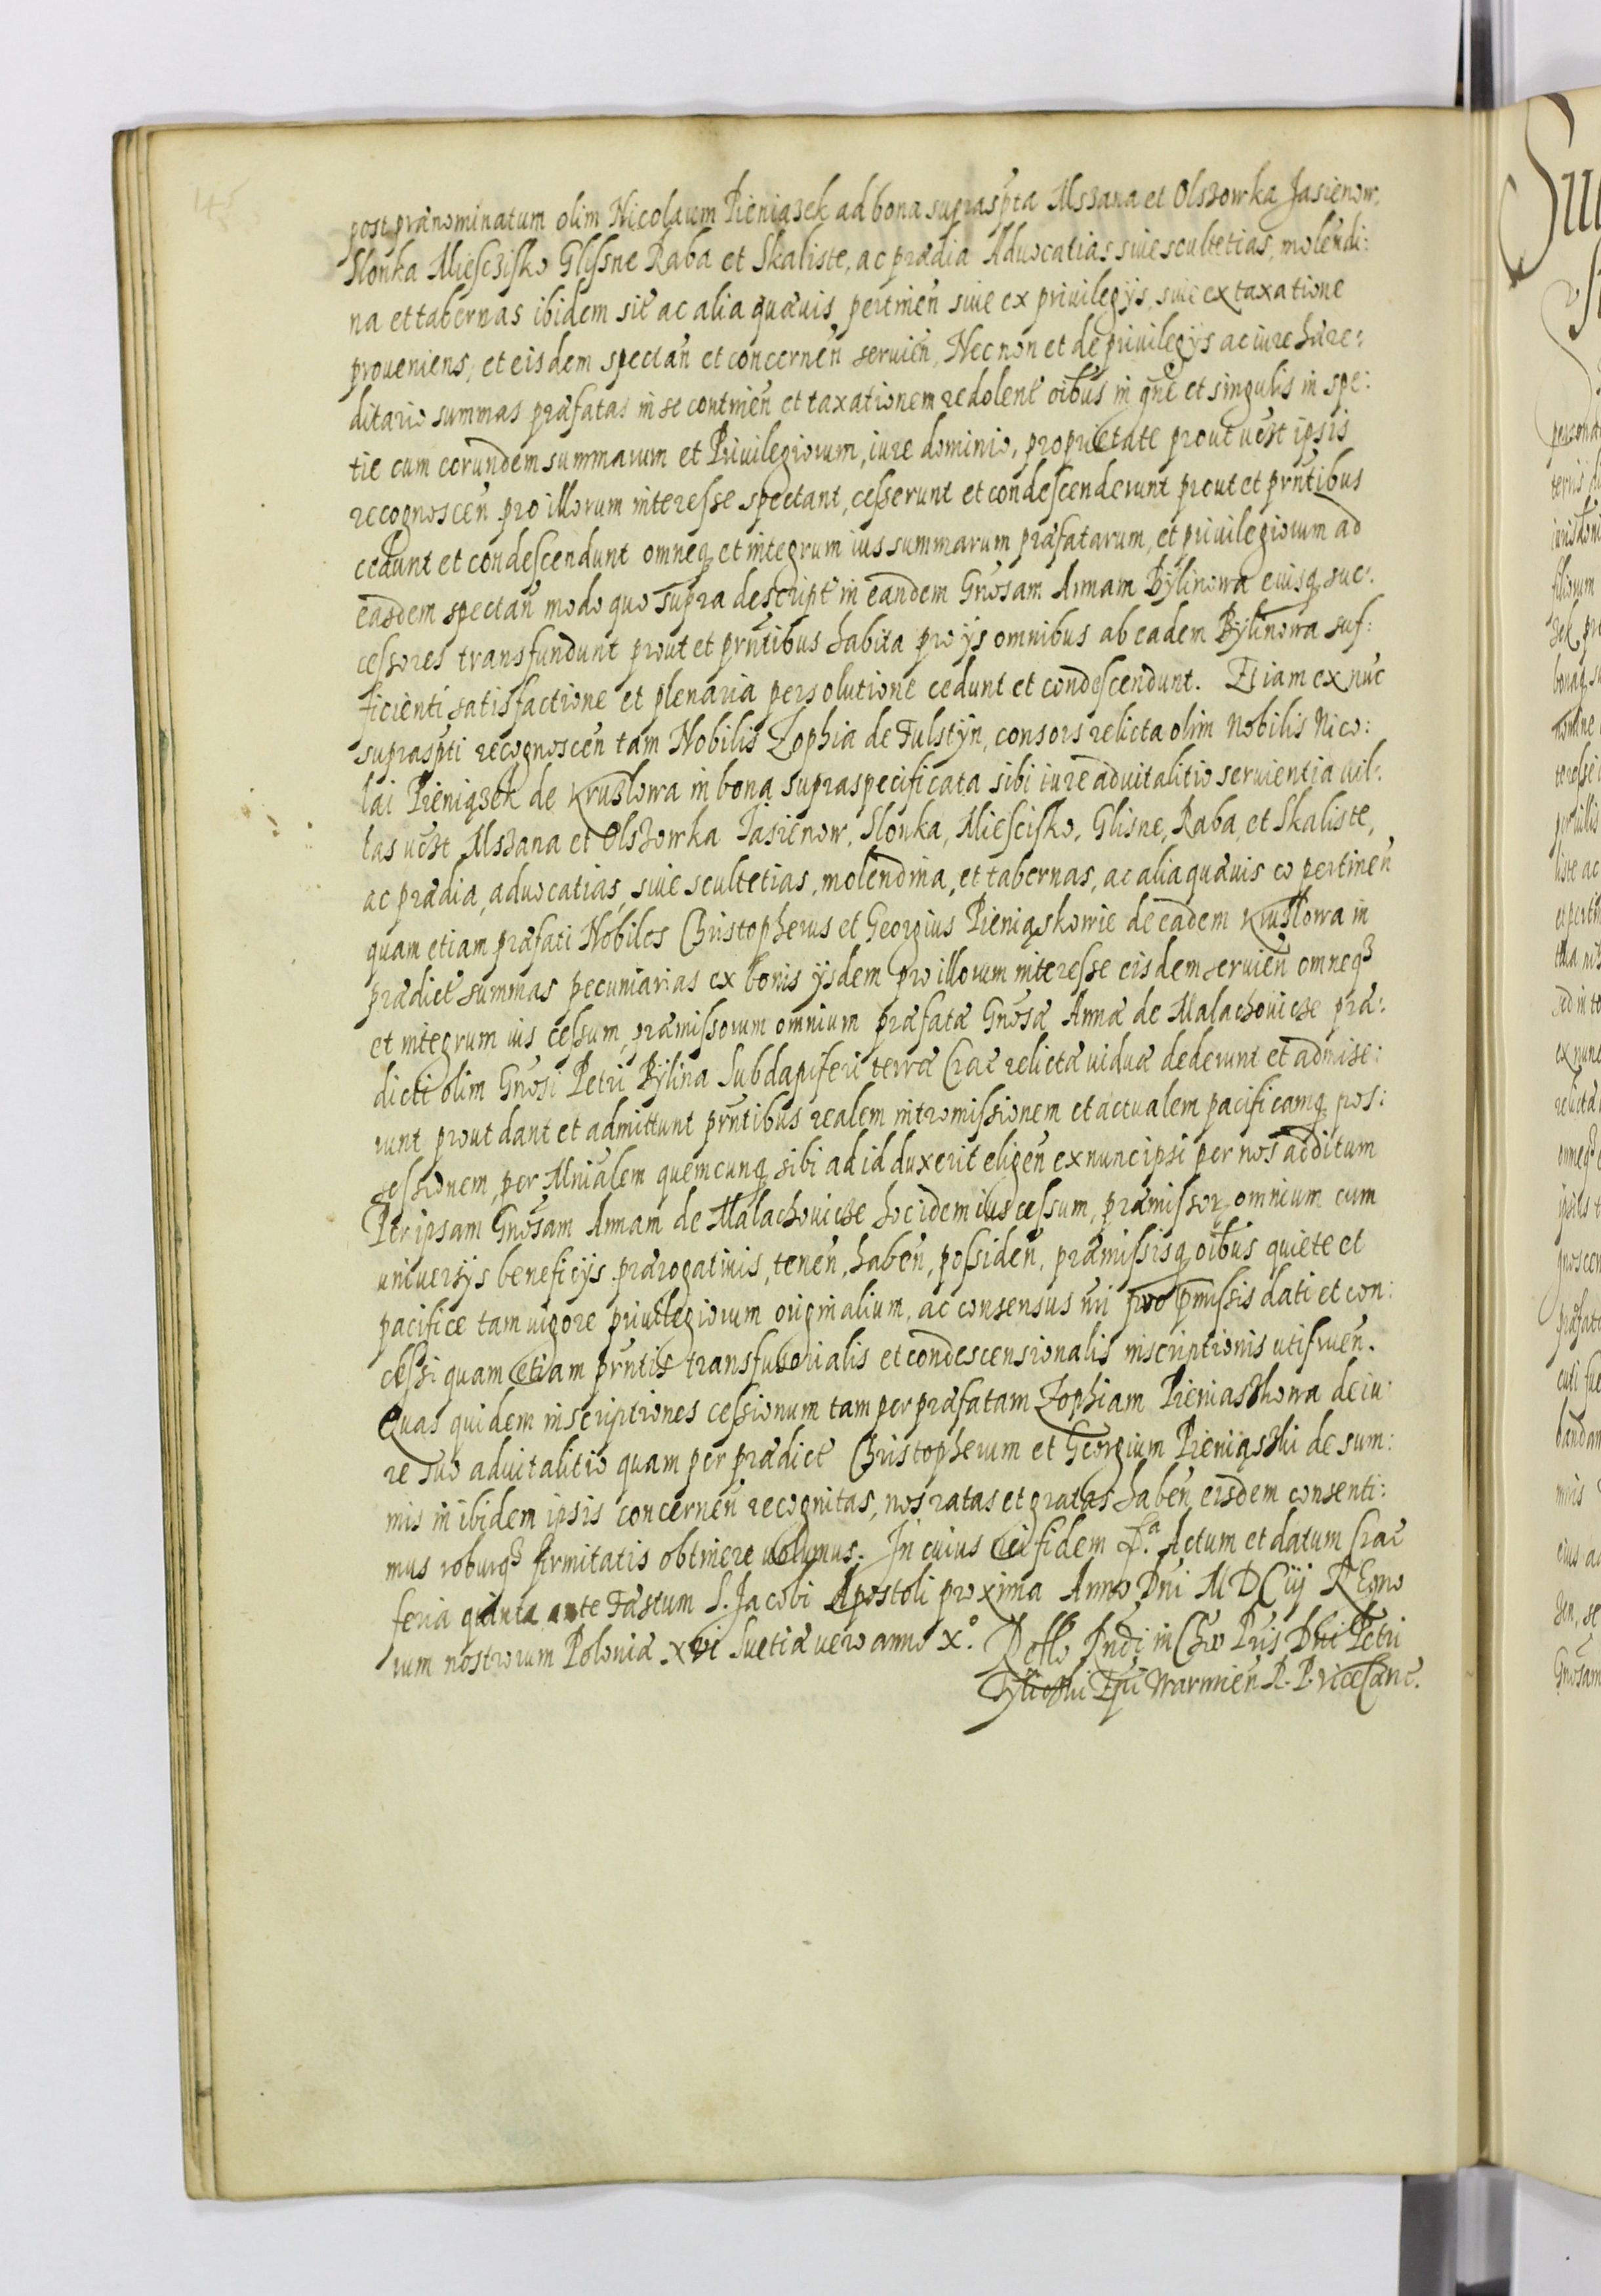 145
post prænominatum olim Nicolaum Pieniązek ad bona supraspta Mszana et Olszowka Jasienow,
Slonka Miesczisko Glissne Raba et Skaliste, ac prædia Aduocatias siue scultetias, molendi:
na et tabernas ibidem sit̃ ac alia quæuis pertineñ siue ex priuilegijs, siue ex taxatione
proueniens, et eisdem spectañ et concerneñ seruieñ, Necnon et de priuilegijs ac iure hære:
ditario summas præfatas in se contineñ et taxationem redolent̃ oĩbus in gñe et singulis in spe:
tie cum eorundem summarum et Priuilegiorum, iure dominio, proprietate prout uõst ipsis
recognosceñ pro illorum interesse spectant, cesserunt et condescenderunt prout et prñtibus
cedunt et condescendunt omneq̨ et integrum ius summarum præfatarum, et priuilegiorum ad
easdem spectañ modo quo supra descript̃ in eandem Gñosam Annam Bÿlinowa eiusq̨ suc:
cessores transfundunt prout et prñtibus habita pro ijs omnibus ab eadem Bÿlinowa suf:
ficienti satisfactione et plenaria persolutione cedunt et condescendunt. Etiam ex nũc
supraspti recognosceñ tam Nobilis Zophia de Fulstÿn, consors relicta olim Nobilis Nico:
lai Pieniązek de Kruzlowa in bona supraspecificata sibi iure aduitalitio seruientia uil:
las uõst Mszana et Olszowka Jasienow, Slonka, Miescisko, Glisne, Raba, et Skaliste,
ac prædia, aduocatias, siue scultetias, molendina, et tabernas, ac alia quæuis eo pertineñ
quam etiam præfati Nobiles Christopherus et Georgius Pieniąskowie de eadem Kruslowa in
prædict̃ summas pecuniarias ex bonis ijsdem pro illorum interesse eisdem seruieñ omneq3
et integrum ius cessum, præmissorum omnium præfatæ Gñosæ Annæ de Malachouicze præ:
dicti olim Gñosi Petri Bÿlina Subdapiferi terræ Crac̃ relictæ uiduæ dederunt et admise:
runt prout dant et admittunt prñtibus realem intromissionem et actualem pacificamq̨ pos:
sessionem, per Mniãlem quemcunq̨ sibi ad id duxerit eligeñ ex nunc ipsi per nos additum
Per ipsam Gñosam Annam de Malachouicze hoc idem ius cessum, præmissor̨ omnium cum
universijs beneficijs prærogatiuis, teneñ, habeñ, possideñ, præmissisq̨ oĩbus quiete et
pacifice tam uigore priuilegiorum originalium, ac consensus nri pro pmissis dati et con:
cessi quam etiam prñtis transfusorialis et condescensionalis inscriptionis utifrueñ.
Quas quidem inscriptiones cessionum tam per præfatam Zophiam Pieniaszkowa de iu:
re suo aduitalitio quam per prædict̃ Christopherum et Georgium Pieniąszki de sum:
mis in ibidem ipsis concerneñ recognitas, nos ratas et gratas habeñ eisdem consenti:
mus roburq3 firmitatis obtinere uolumus. In cuius rei fidem &ᵃ. Actum et datum Crac̃
feria quinta ante Fæstum S. Jacobi Apostoli proxima Anno Dñi MDCiij REgno
rum nostrorum Poloniæ xvi Suetiæ uero anno xº. Rełło Rndi in Chro Pris Dñi Petri
Tÿliczki Epĩ Warmieñ R. P. viceCanc̃.